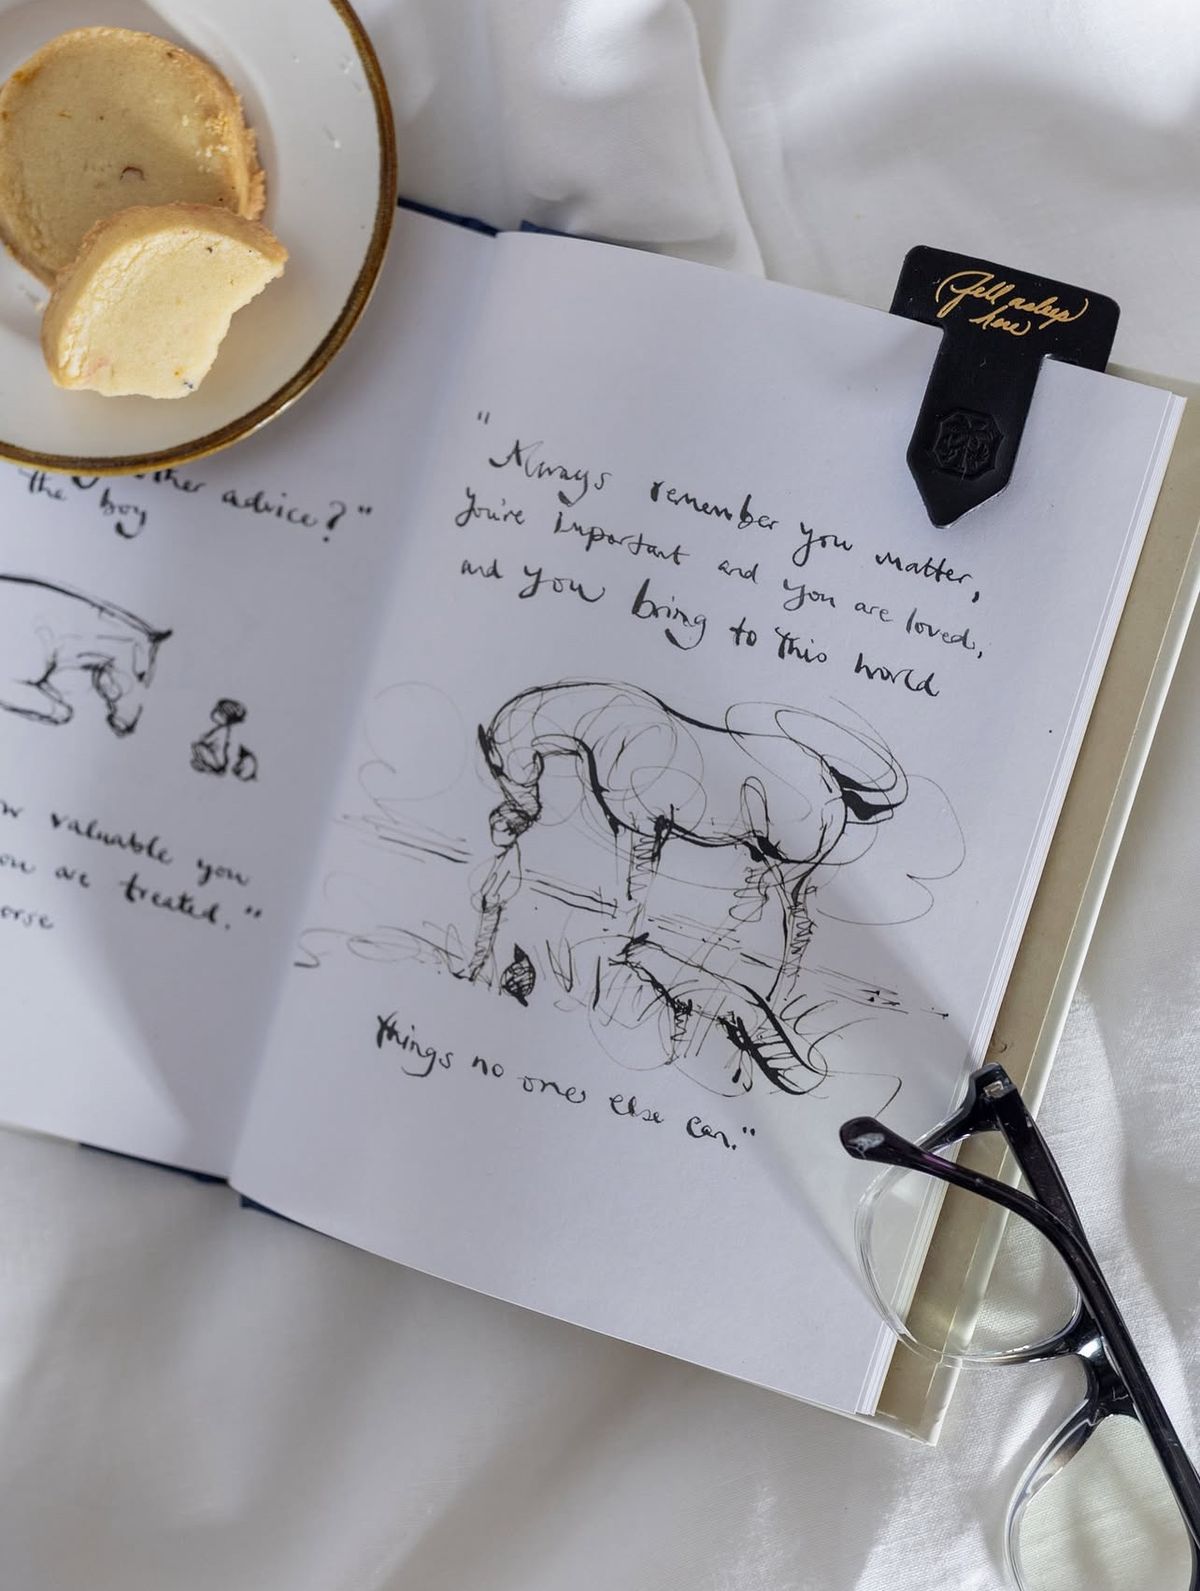 other advice?"
the boy
valuable you
are treated."
"Always remember you matter,
you're important and you are loved,
and you bring to this world
things no one else can."
Fell asleep
here